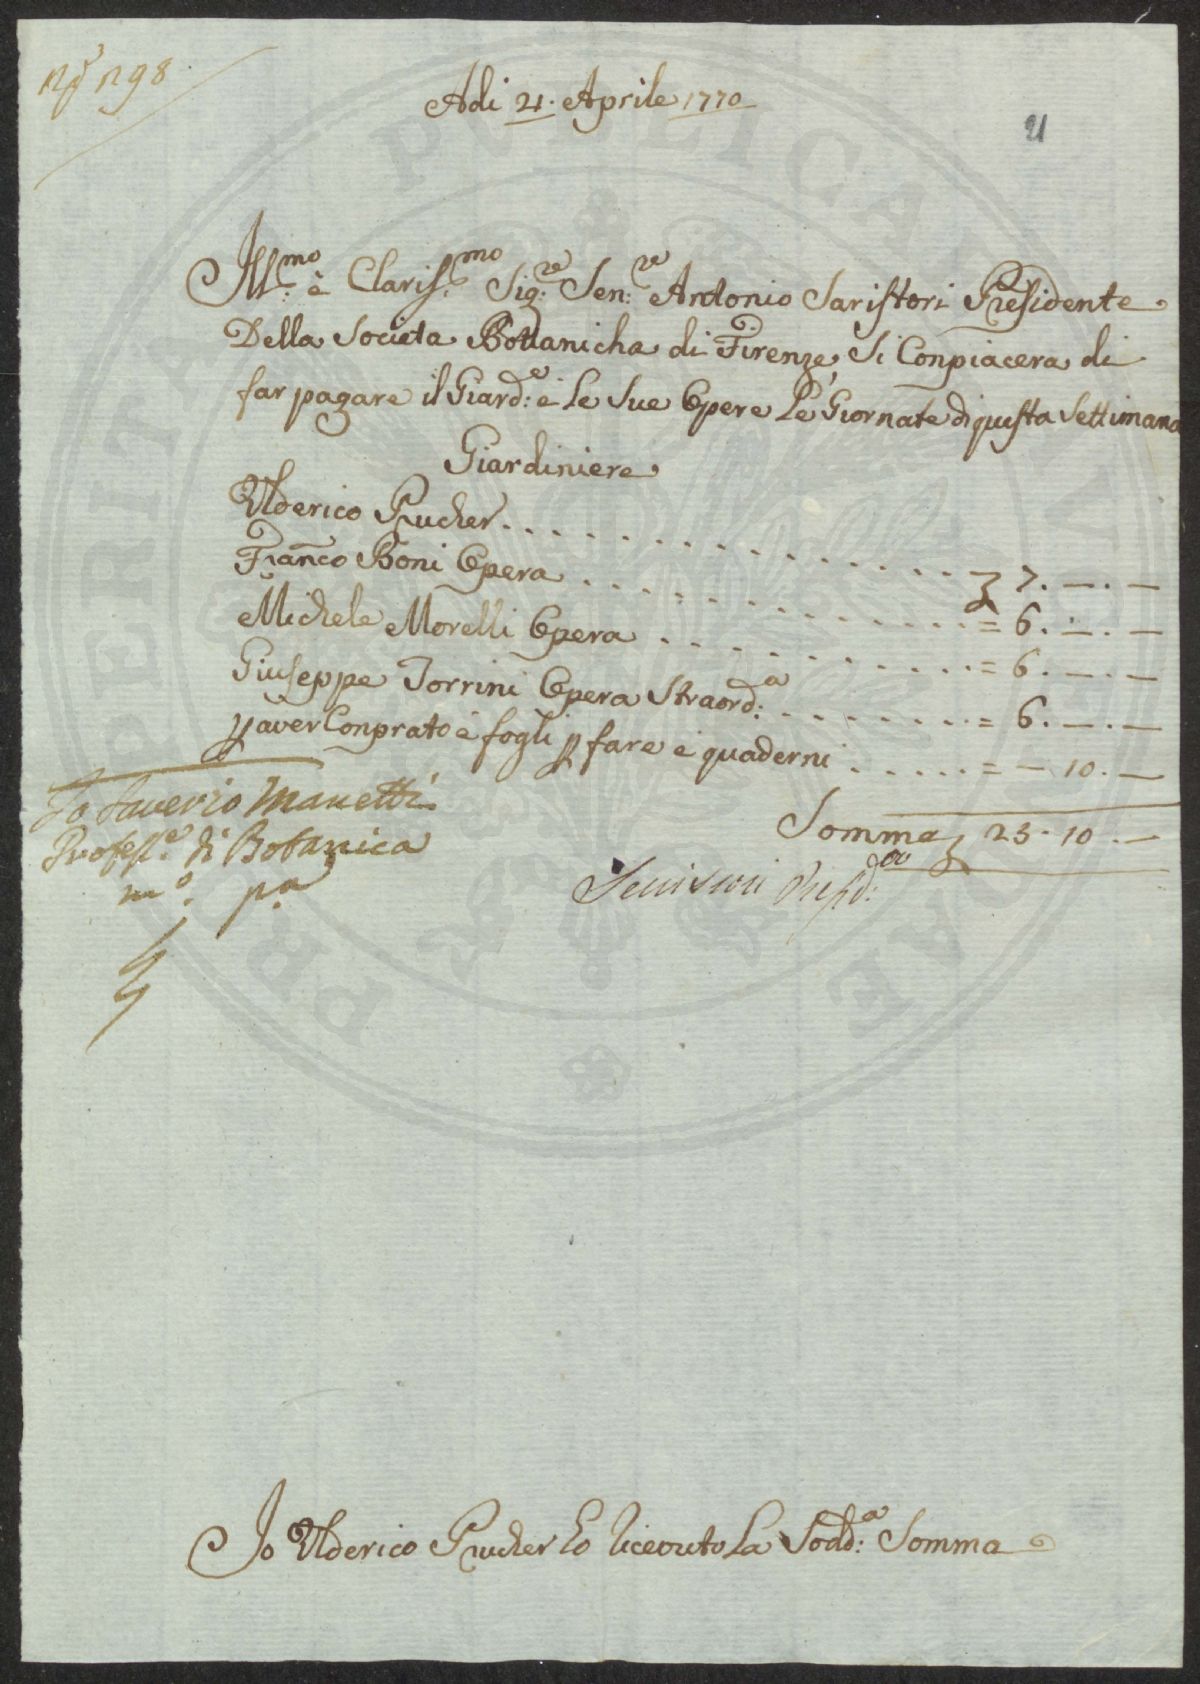 N.º 298
Adi 21. Aprile 1770
21
Ill:mo è Clariss:mo Sig:re Sen:re Antonio Saristori Presidente
Della Societa Bottanicha di Firenze, Si Conpiacera di
far pagare il Giard:e è Le Sue Opere Le Giornate di questa Settimana
Giardiniere
Ulderico Prucher . . . . . . . . . . . . . . . . . . 7. —. —
Franco Boni Opera . . . . . . . . . . . . . . . = 6. —. —
Michele Morelli Opera . . . . . . . . . . . . = 6. —. —
Giuseppe Torrini Opera Straord:a . . . . . . . . = 6. —. —
p aver Conprato è fogli p fare è quaderni . . . . . . = — 10. —
Somma 25. 10. —
Io Saverio Manetti
Profess.e di Botanica
m.o p.a
Presid:
Io Ulderico Prucher Eo Riceuto La Sodd:a Somma
PERITAS PUBLICAE